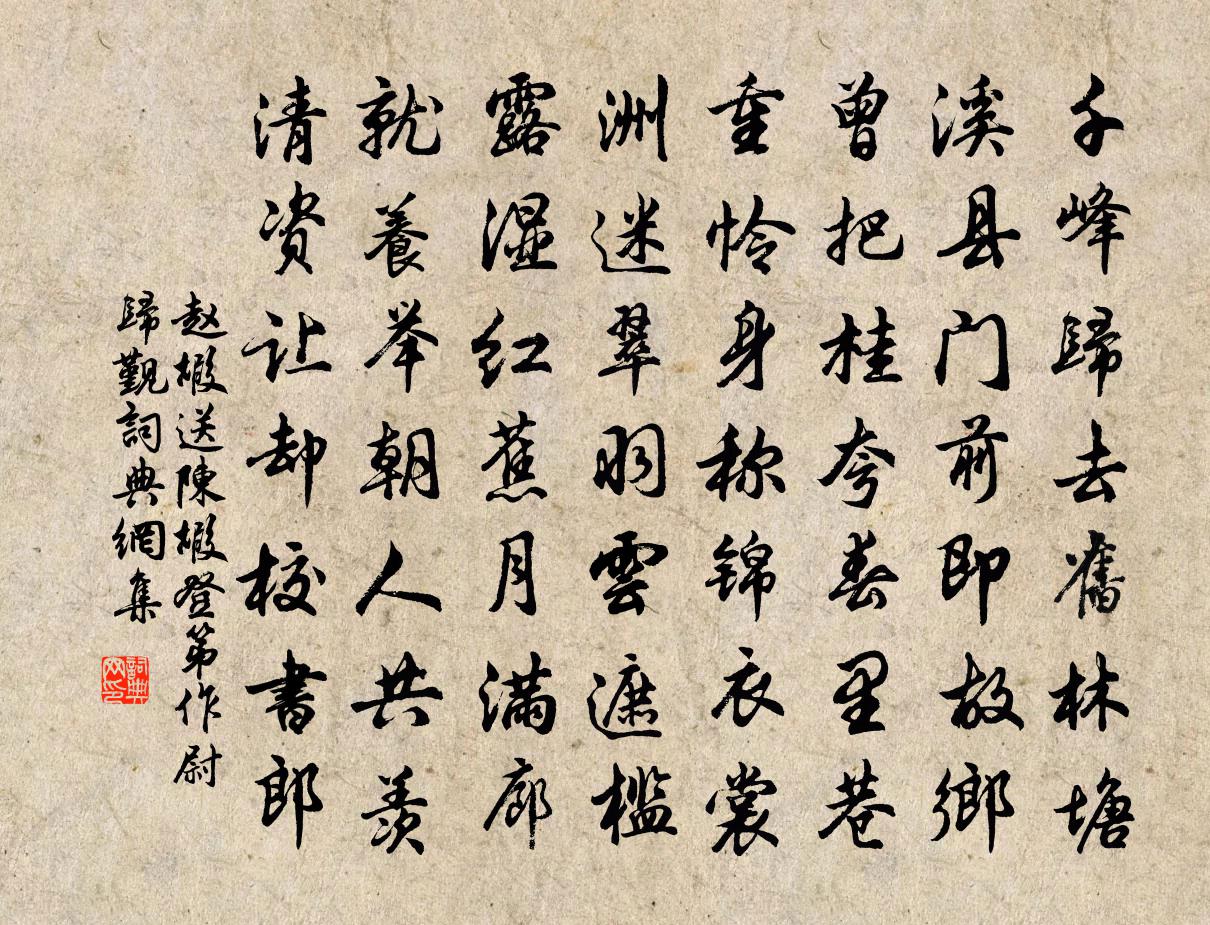 千峰歸去舊林塘
溪县门前即故鄉
曾把桂夸春里巷
重怜身称锦衣裳
洲迷翠羽雲遮槛
露湿红蕉月满廊
就養举朝人共羡
清资让却校書郎
赵嘏送陳嘏登第作尉
歸覲詞典網集
詞典网印